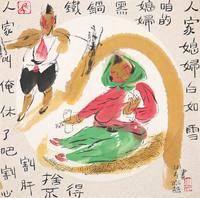 人家媳婦白如雪
咱的
媳婦
黑
鍋
鐵
人家叫俺休了吧割心
割肝
捨
得